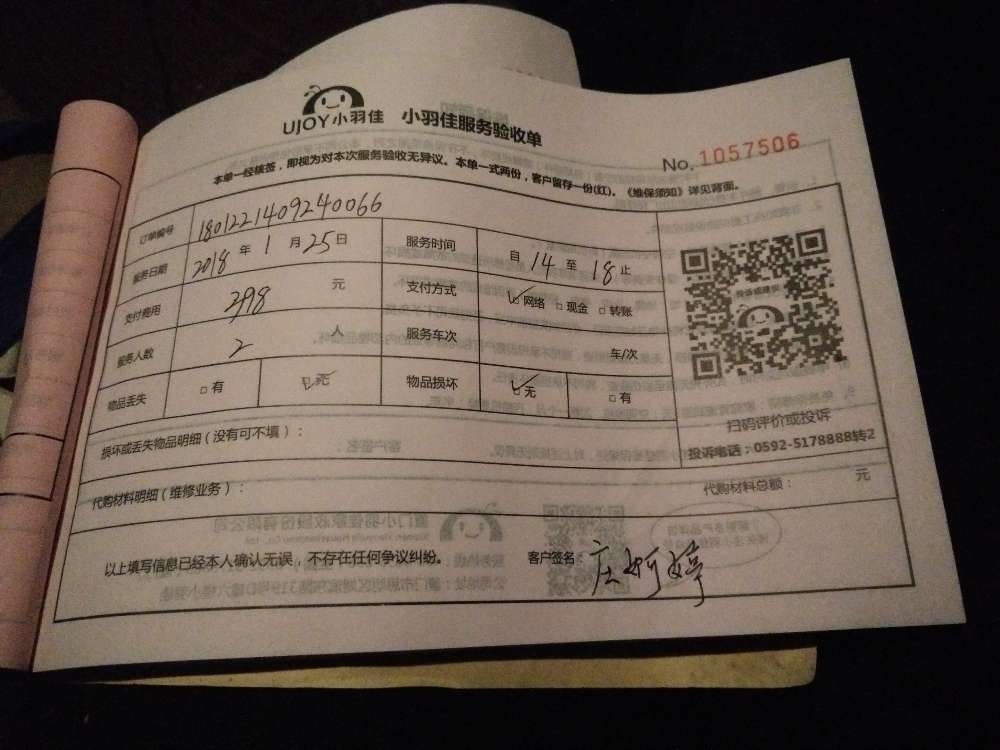 UJOY小羽佳 小羽佳服务验收单
No. 1057506
本单一经核签，即视为对本次服务验收无异议。本单一式两份，客户留存一份(红)。《维保须知》详见背面。
订单编号 1801221409240066
服务日期 2018 年 1 月 25 日 服务时间 自 14 至 18 止
支付费用 298 元 支付方式 ☑网络 □现金 □转账
服务人数 2 人 服务车次 车/次
物品丢失 □有 ☑无 物品损坏 ☑无 □有
扫码评价或投诉
投诉电话：0592-5178888转2
损坏或丢失物品明细（没有可不填）：
代购材料明细（维修业务）： 代购材料总额： 元
以上填写信息已经本人确认无误，不存在任何争议纠纷。 客户签名 庄婀婷